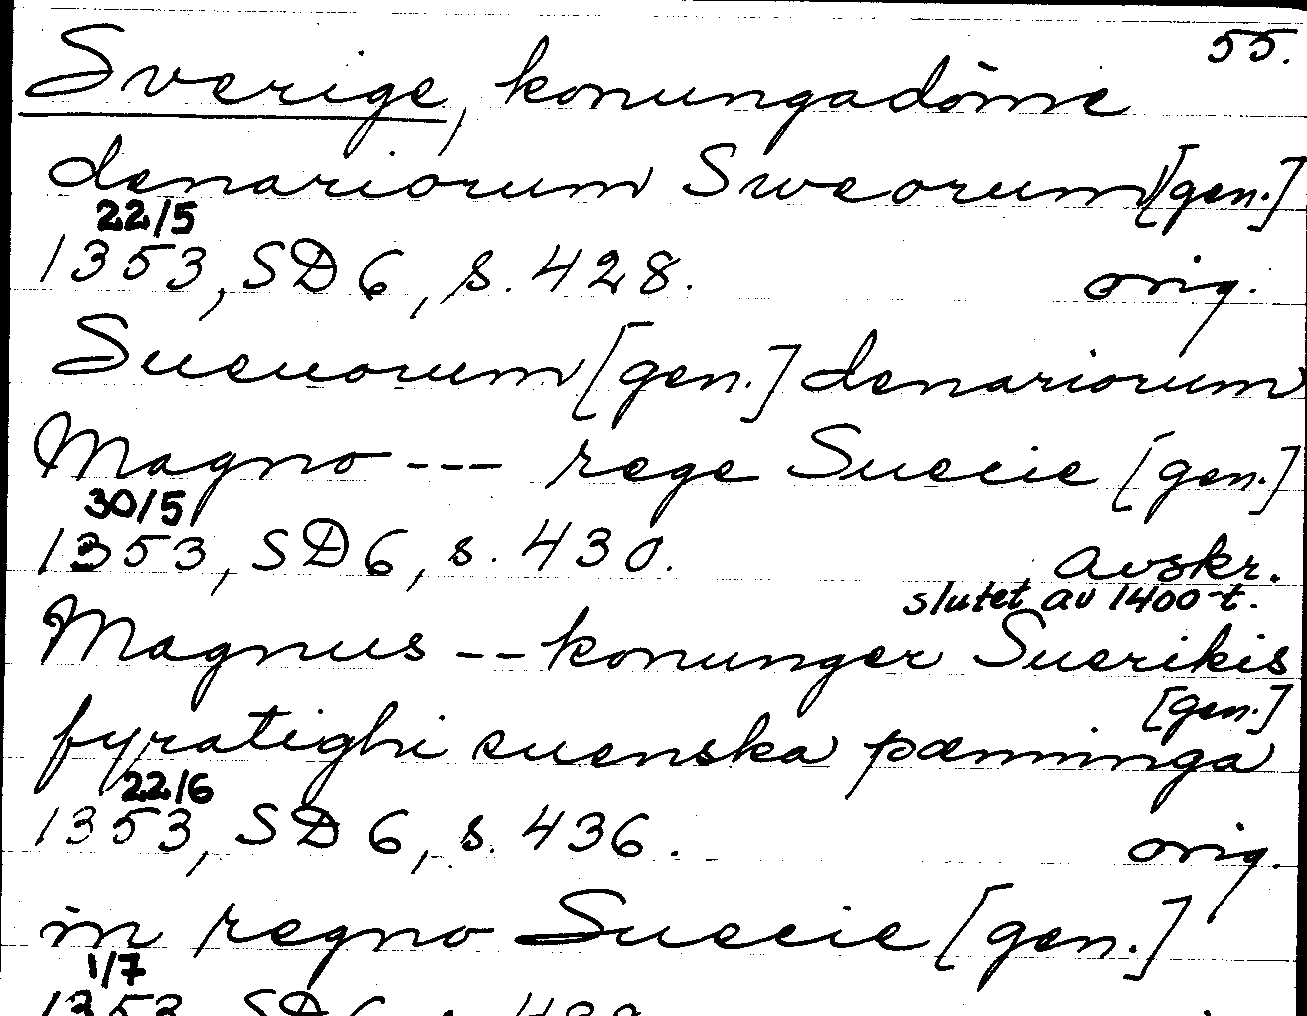 55.
Sverige, konungadöme
denariorum Sweorum [gen.]
22/5
1353, SD 6, s. 428. orig.
Sueuorum [gen.] denariorum
Magno --- rege Suecie [gen.]
30/5
1353, SD 6, s. 430. Avskr.
slutet av 1400-t.
Magnus -- konunger Suerikis
[gen.]
fyratighi suenska pænninga
22/6
1353, SD 6, s. 436. orig.
in regno Suecie [gen.]
1/7
1353, SD 6, s.